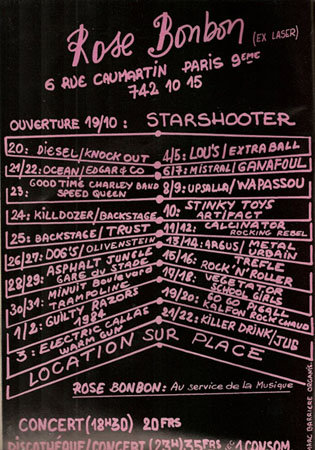 Rose Bonbon (EX LASER)
6 RUE CAUMARTIN PARIS 9EME
742 10 15
OUVERTURE 19/10 : STARSHOOTER
20: DIESEL/KNOCK OUT
21/22: OCEAN/EDGAR & CO
23: GOOD TIME CHARLEY BAND
SPEED QUEEN
24: KILLDOZER/BACKSTAGE
25: BACKSTAGE/TRUST
26/27: DOG'S/OLIVENSTEIN
28/29: ASPHALT JUNGLE
GARE DU STADE
30/31: MINUIT Boulevard
TRAMPOLINE
1/2: GUILTY RAZORS
1984
3: ELECTRIC CALLAS
WARM GUN
4/5: LOU'S/EXTRABALL
6/7: MISTRAL/GANAFOUL
8/9: UPSALLA/WAPASSOU
10: STINKY TOYS
ARTIFACT
11/12: CALCINATOR
ROCKING REBEL
13/14: ARGUS/METAL
URBAIN
15/16: TREFLE
ROCK'N'ROLLER
17/18: VEGETATOR
SCHOOL GIRLS
19/20: GO GO PIGALL
KALFON ROCK CHAUD
21/22: KILLER DRINK/JUB
LOCATION SUR PLACE
ROSE BONBON: Au service de la Musique
CONCERT (18H30) 20FRS
DISCOTHÈQUE/CONCERT (23H) 35FRS & 1 CONSOM
MARC BARRIERE ORGANIS.